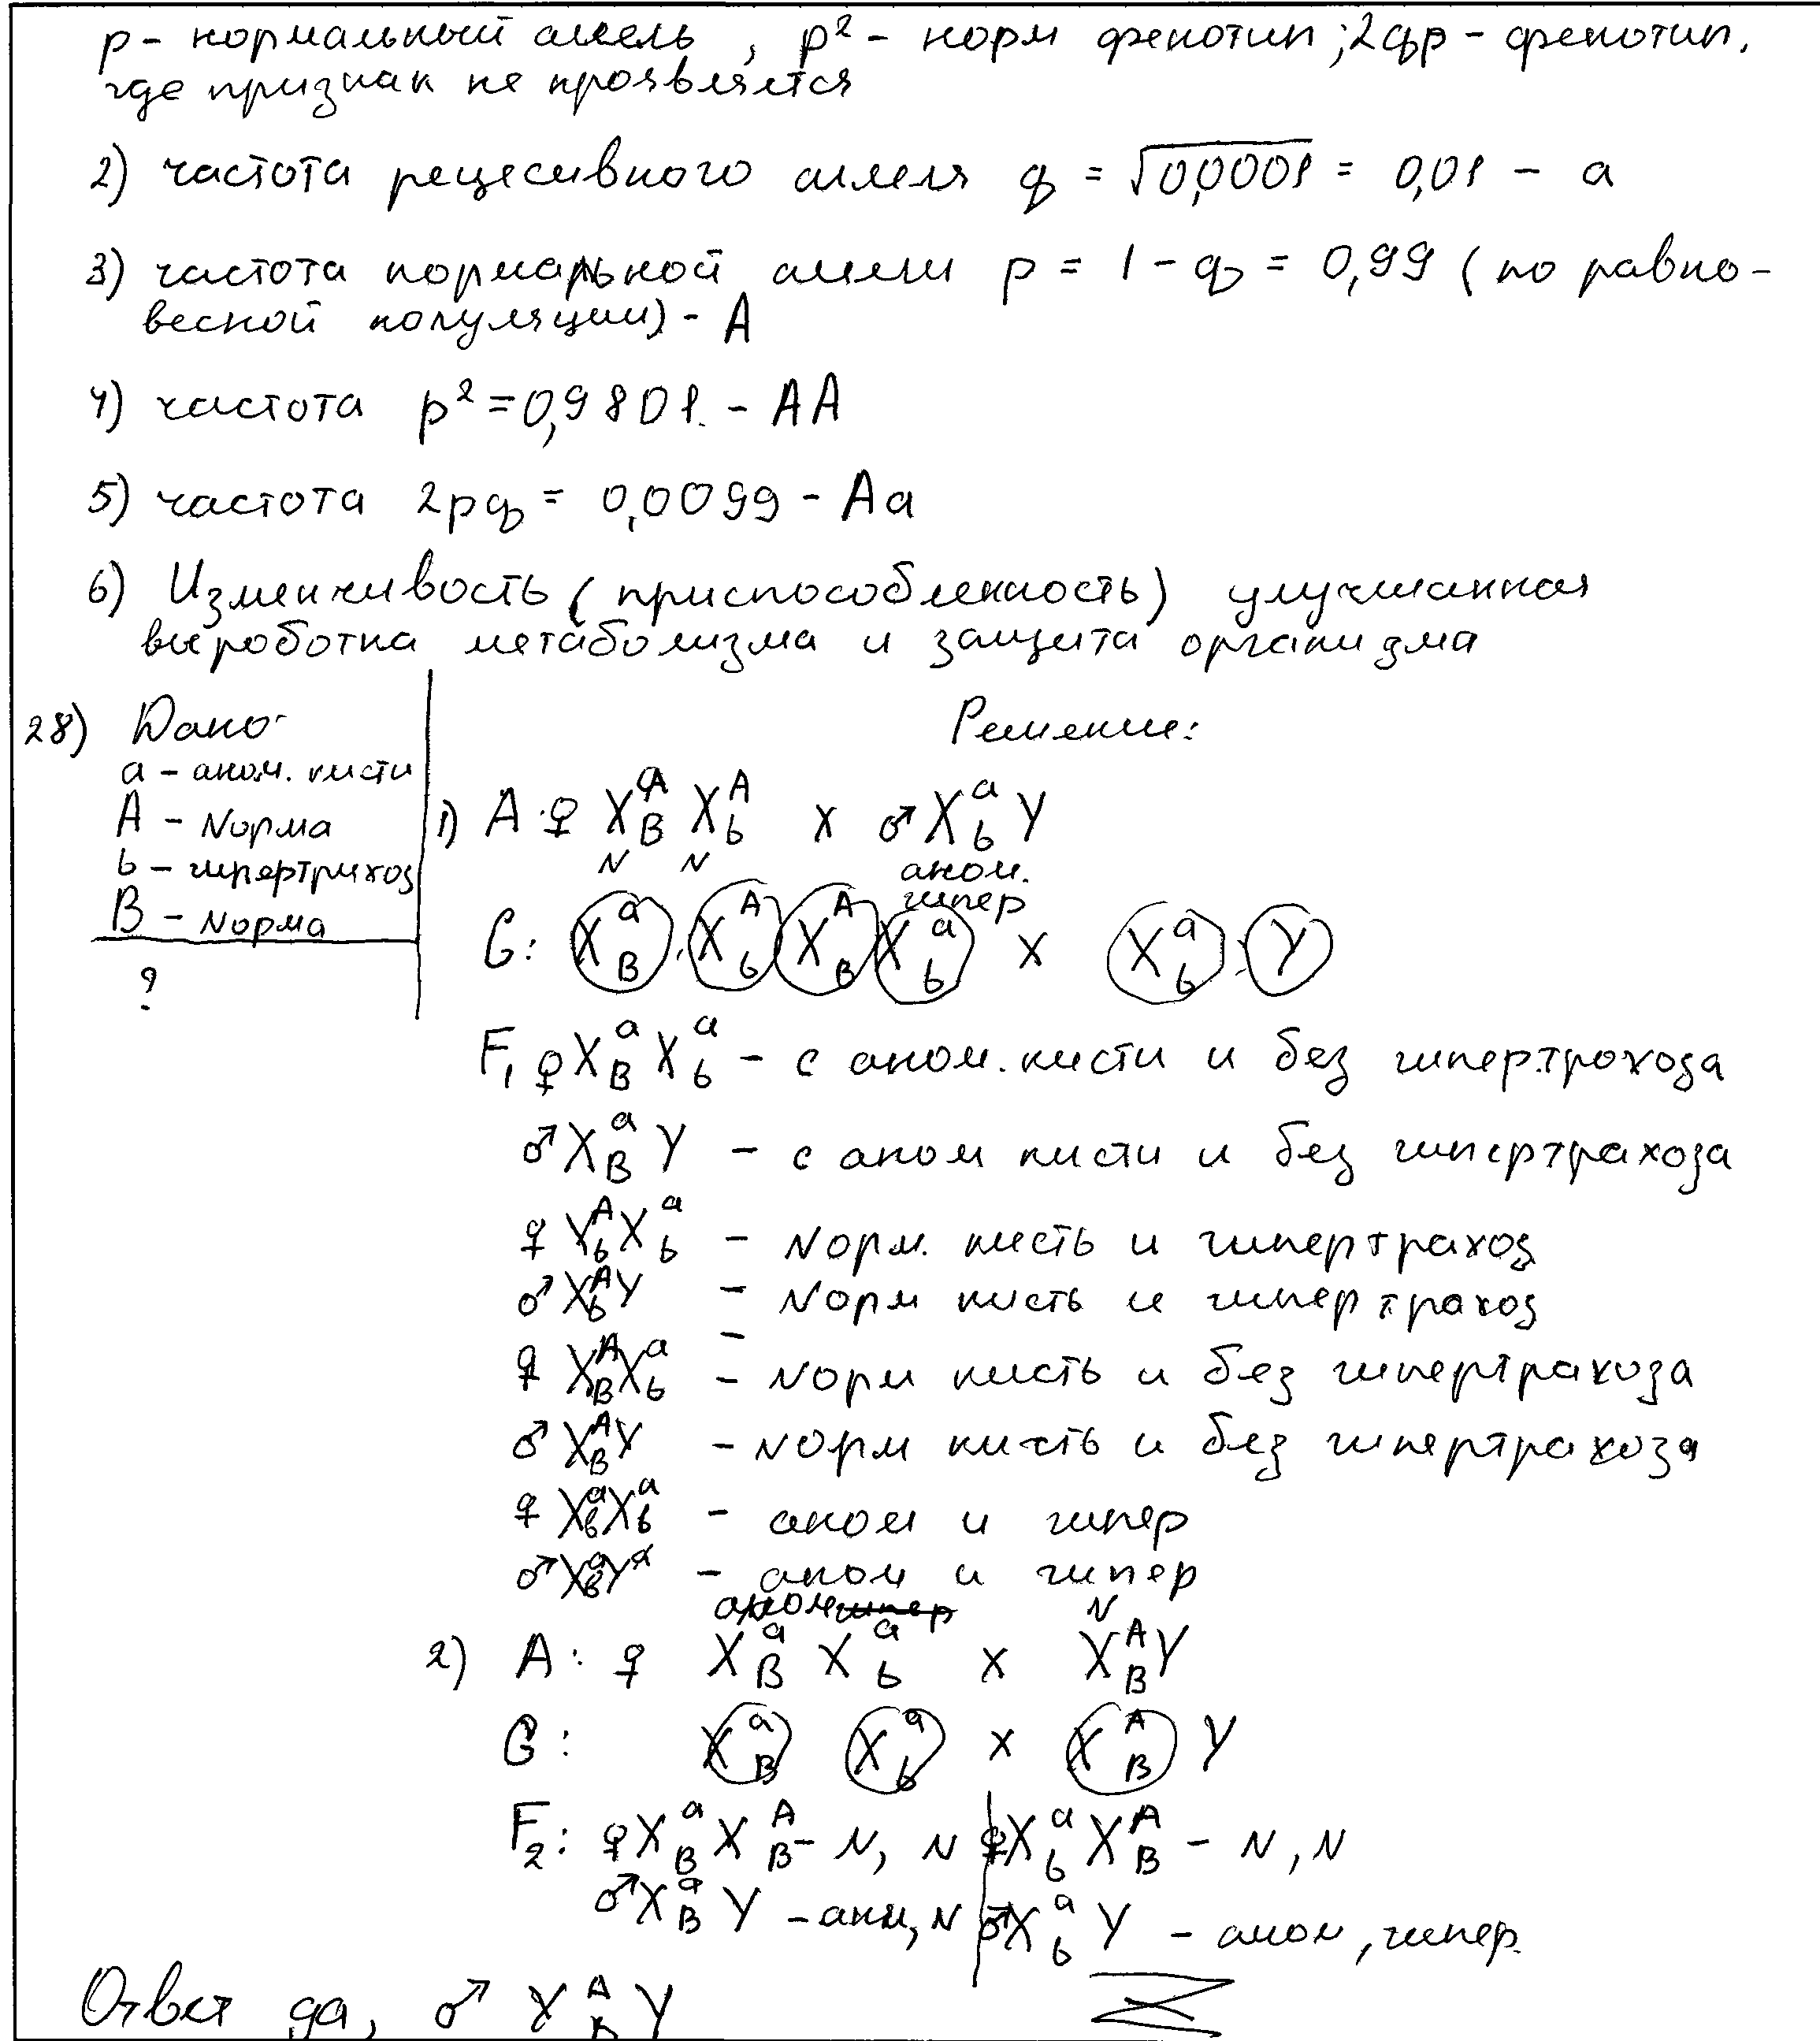 p - нормальный аллель, p² - норм фенотип; 2qp - фенотип,
где признак не проявляется
2) частота рецесивного аллеля q = √0,0001 = 0,01 - a
3) частота нормальной аллели p = 1 - q = 0,99 (по равно-
весной популяции) - A
4) частота p² = 0,9801. - AA
5) частота 2pq = 0,0099 - Aa
6) Изменчивость (приспособленность) улучшанная
выроботка метаболизма и защита организма
28) Дано: Решение:
a - аном. кисти
A - Nорма
b - гипертрихоз
B - Nорма
?
1) A: ♀ X^a_B X^A_b x ♂ X^a_b Y
N N аном.
гипер
G: X^a_B, X^A_b X^A_B X^a_b x X^a_b; Y
F₁ ♀ X^a_B X^a_b - с аном. кисти и без гипертрохоза
♂ X^a_B Y - с аном кисти и без гипертрахоза
♀ X^A_b X^a_b - Nорм. кисть и гипертрахоз
♂ X^A_b Y - Nорм кисть и гипертрахоз
♀ X^A_B X^a_b - Nорм кисть и без гипертрахоза
♂ X^A_B Y - Nорм кисть и без гипертрахоза
♀ X^a_b X^a_b - аном и гипер
♂ X^a_b Y - аном и гипер
аном N
2) A: ♀ X^a_B X^a_b x X^A_B Y
G: X^a_B X^a_b x X^A_B Y
F₂: ♀ X^a_B X^A_B - N, N | ♀ X^a_b X^A_B - N, N
♂ X^a_B Y - аном, N | ♂ X^a_b Y - аном, гипер.
Ответ да, ♂ X^A_B Y